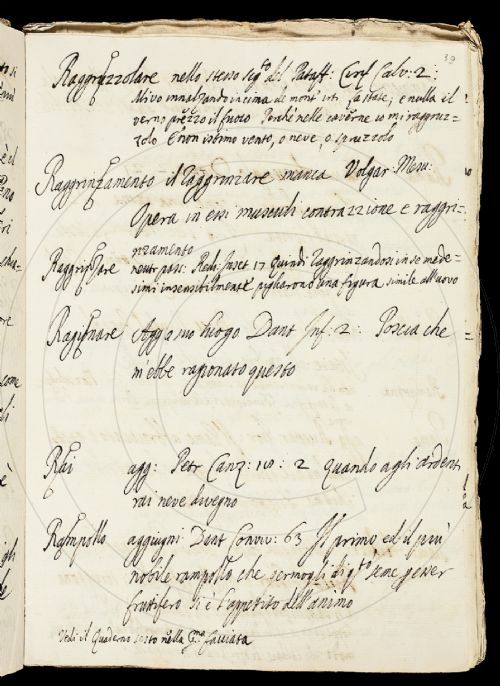 39
Raggruzzolare nello stesso sig.to del Pataff: Cirif Calv: 2:
Mi vo innalzando in cima de monti irti la state, e nulla il
verno prezzo il fuoco Perchè nelle caverne io mi raggruz=
zolo E non istimo vento, o neve, o spruzzolo
Raggrinzamento il Raggrinzare manca Volgar: Mesu:
Opera in essi musculi contrazzione e raggri=
nzamento
Raggrinzare neutr pass: Redi Inset 17 Quindi raggrinzandosi in se mede=
simi insensibilmente pigliarono una figura simile all'uovo
Ragionare Agg a suo luogo Dant Inf: 2: Poscia che
m ebbe ragionato questo
Rai agg: Petr Canz: 2 quando agli ardenti
rai neve divegno
Rampollo aggiugni: Dant Conviv: 63 Il primo ed il più
nobile rampollo che germogli di q.to seme per esser
fruttifero si è l'appetito dell'animo
Vedi il Quaderno sesto nella facciata